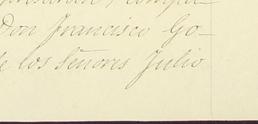 Don Francisco Go-
de los Señores Julio